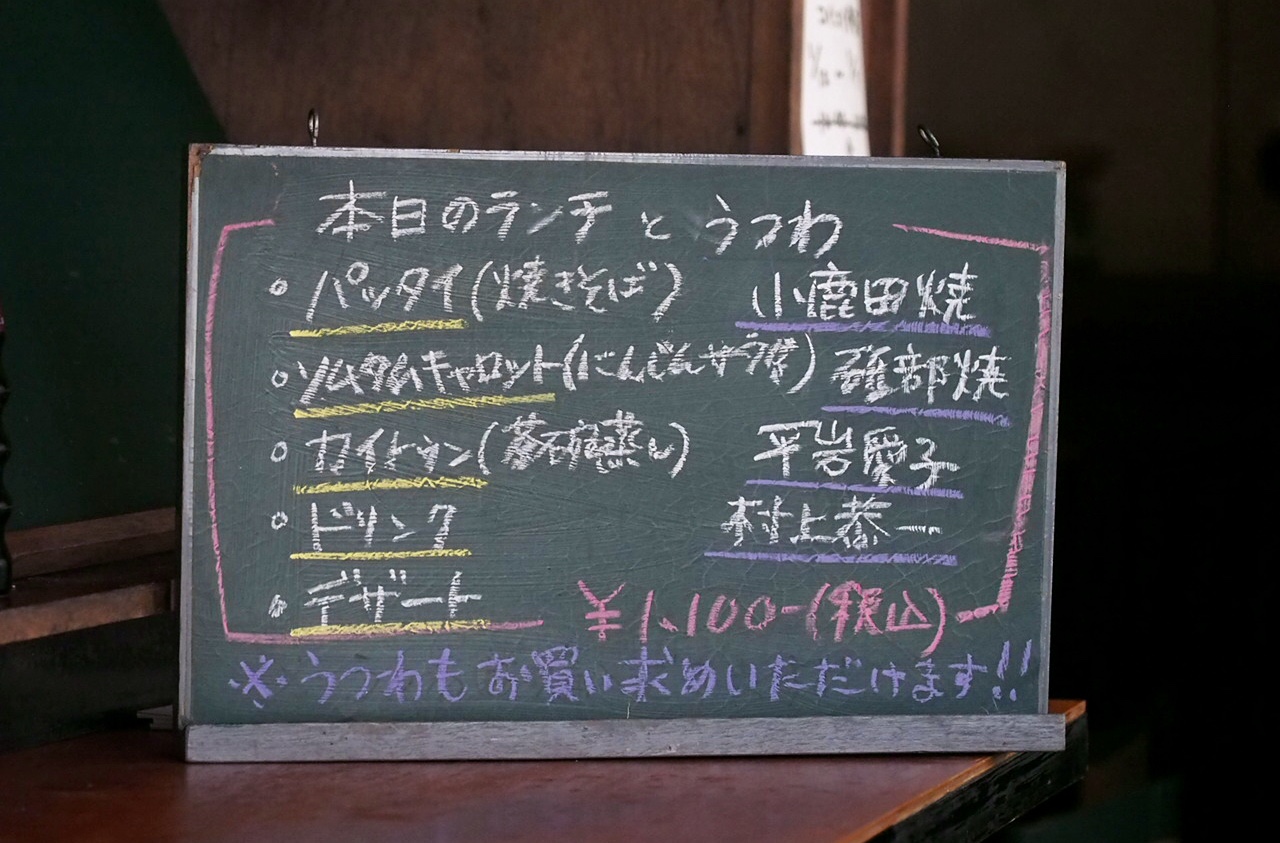 本日のランチとうつわ
○ パッタイ(焼きそば) 小鹿田焼
○ ソムタムキャロット(にんじんサラダ) 砥部焼
○ カイトゥン(茶碗蒸し) 平岩愛子
○ ドリンク 村上恭一
○ デザート
¥1,100-(税込)
※うつわもお買い求めいただけます!!